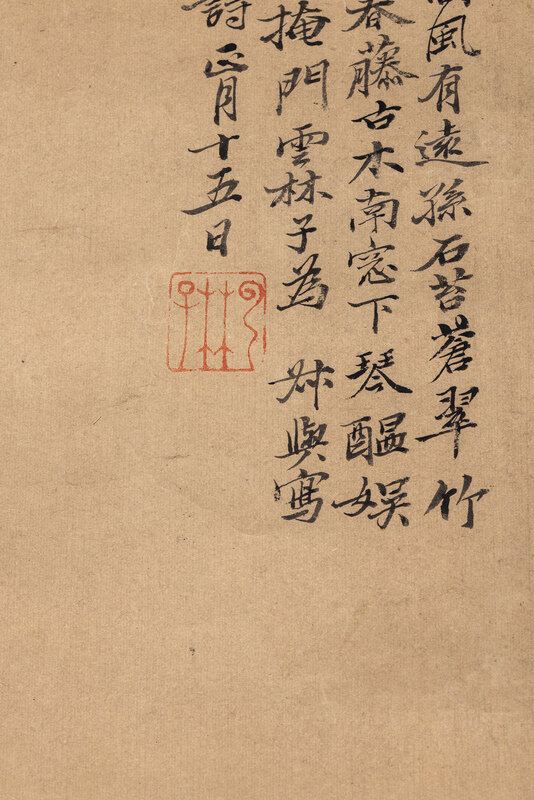 風有遠孫石苔蒼翠竹
春藤古木南窓下琴醞娛
掩門雲林子為 叔與寫
詩正月十五日
云林子